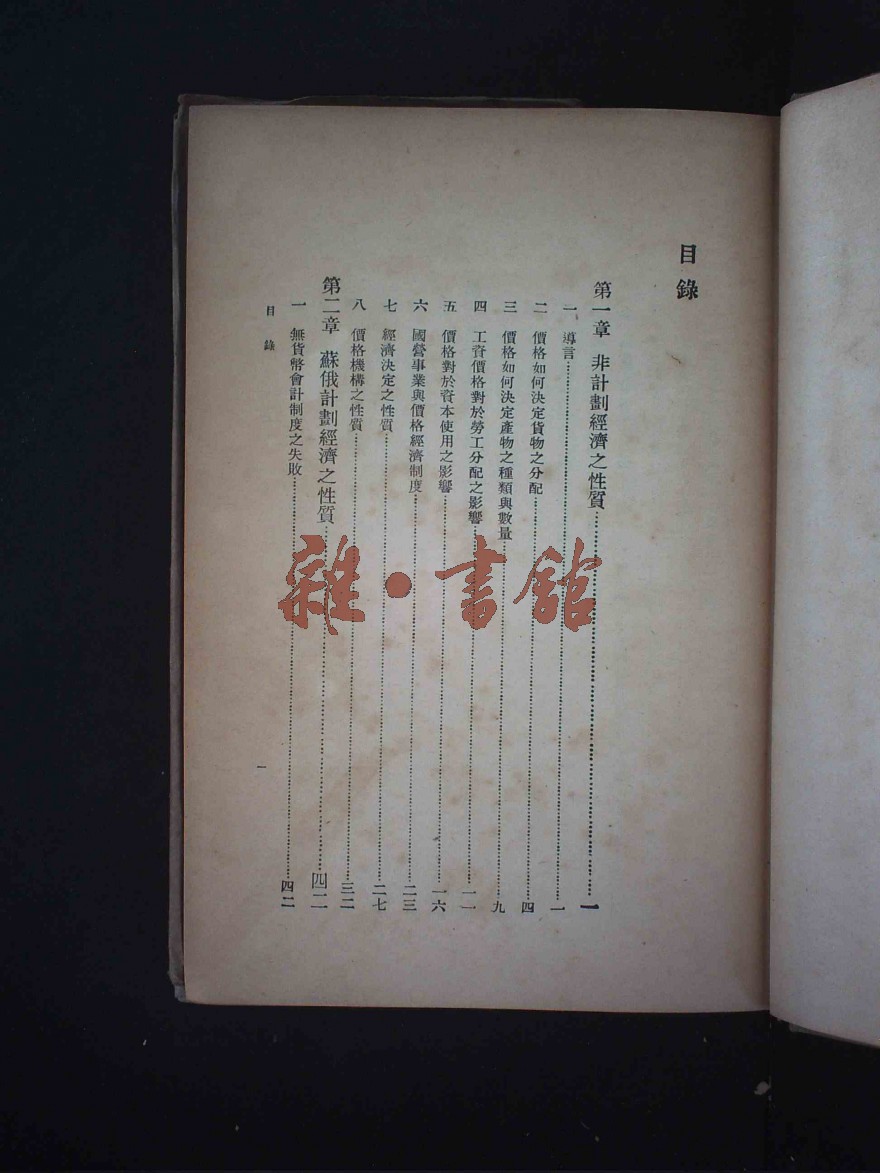 目錄
第一章 非計劃經濟之性質……一
一 導言……一
二 價格如何決定貨物之分配……四
三 價格如何決定產物之種類與數量……九
四 工資價格對於勞工分配之影響……一一
五 價格對於資本使用之影響……一六
六 國營事業與價格經濟制度……二三
七 經濟決定之性質……二七
八 價格機構之性質……三二
第二章 蘇俄計劃經濟之性質……四二
一 無貨幣會計制度之失敗……四二
目錄
一
雜·書館